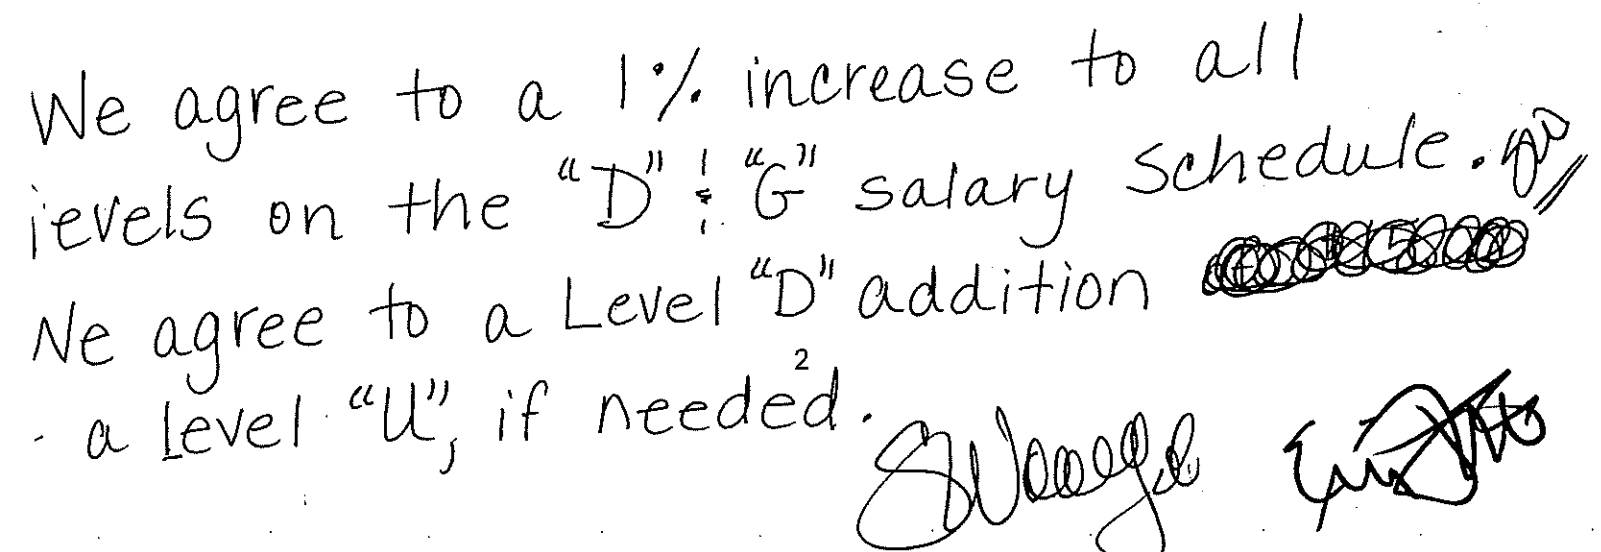 We agree to a 1% increase to all
levels on the "D" & "G" salary schedule.
We agree to a Level "D" addition
a level "U", if needed.
2